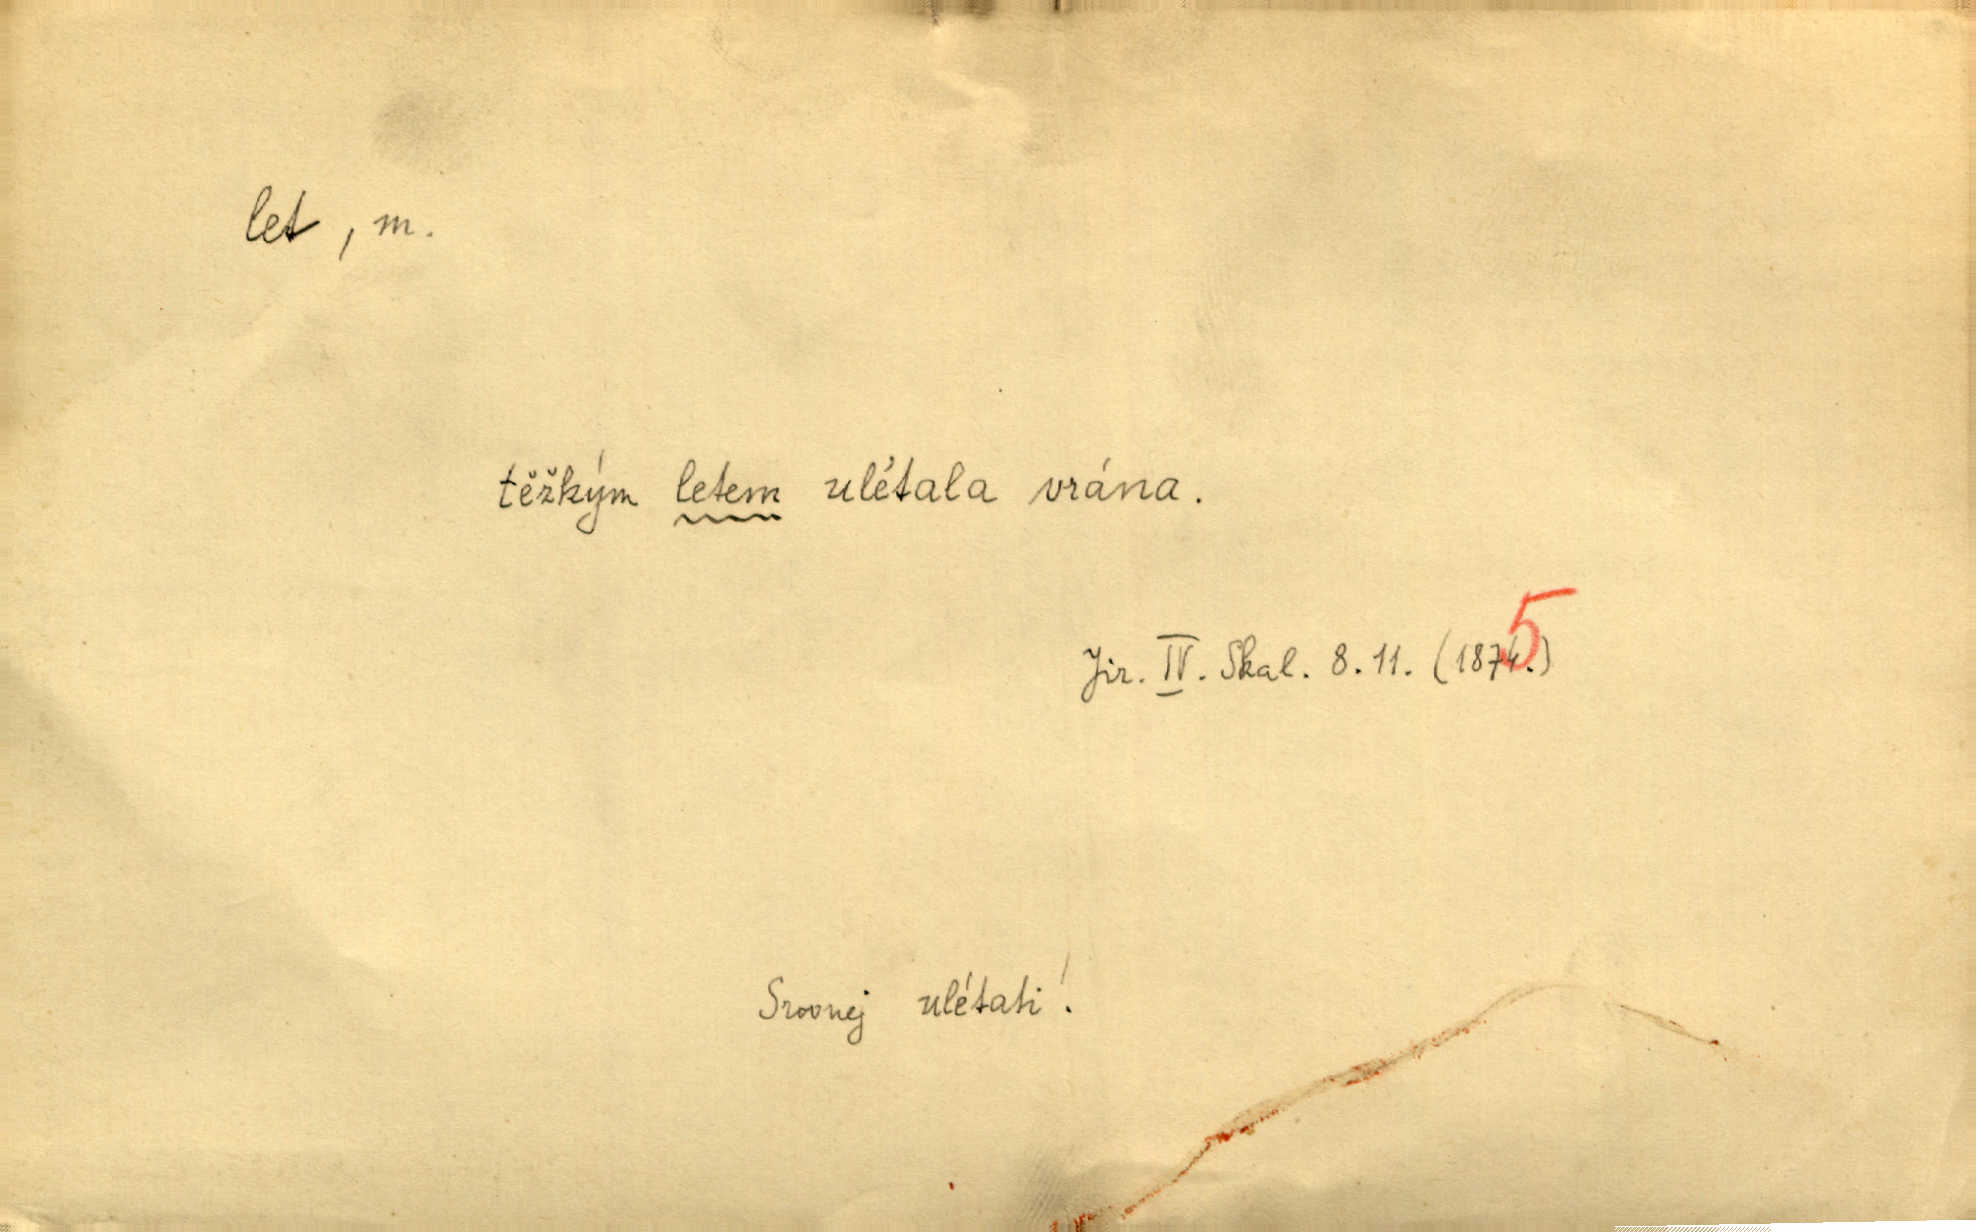 let, m.
těžkým letem ulétala vrána.
Jir. IV. Skal. 8.11. (1875.)
Srovnej ulétati!